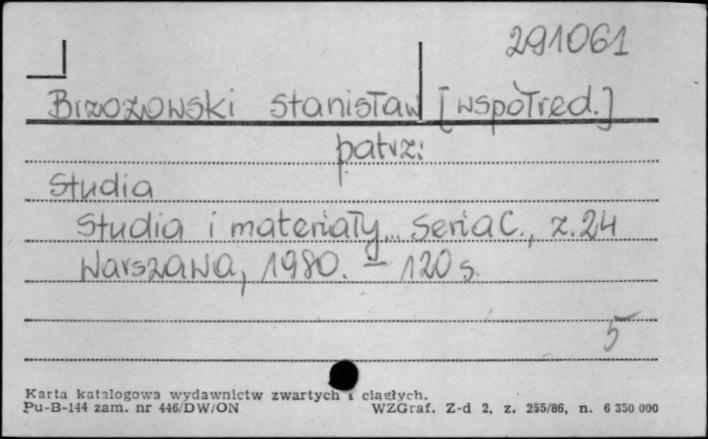 291061
Brzozowski Stanisław [współred.]
patrz:
Studia
Studia i materiały... Seria C., z. 24
Warszawa, 1980. - 120 s.
5
Karta katalogowa wydawnictw zwartych i ciągłych.
Pu-B-144 zam. nr 446/DW/ON WZGraf. Z-d 2, z. 255/86, n. 6 350 000